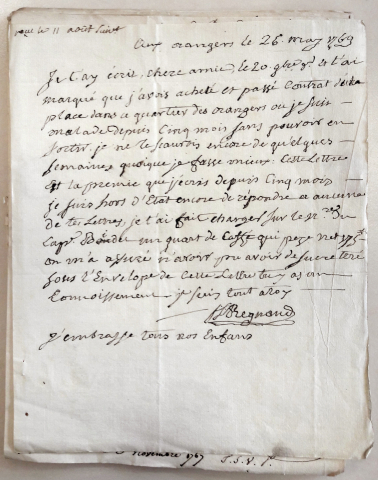 que le 11 août
Aux orangers le 26. may 1769
Je t'ay écrit, chere amie, le 20. et t'ai
marqué que j'avois acheté et passé Contrat
place dans ce quartier des orangers ou je suis
malade depuis Cinq mois sans pouvoir en
sortir, je ne le scaurois encore de quelques
semaines quoique je fasse mieux: Cette Lettre
est la premiere que j'écris depuis Cinq mois
je suis hors d'Etat encore de répondre a aucune
de tes Lettres, je t'ai fait charger sur le Du
Capne. un quart de Caffé qui peze net 175
on m'a assuré n'avoir pu avoir de sucre teré
sous l'Envelope de Cette Lettre tu as un
Connoissement je suis tout a toy
Regnaud
J'embrasse tous nos Enfans
Novembre 1767 T.S.V.P.